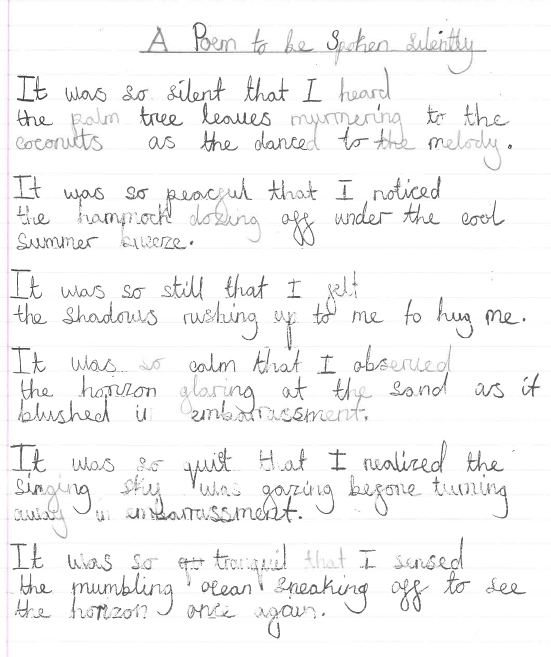 A Poem to be Spoken silently
It was so silent that I heard
the palm tree leaves myrmering to the
coconuts as the danced to the melody.
It was so peacful that I noticed
the hammock dozing off under the cool
summer breeze.
It was so still that I felt
the shadows rushing up to me to hug me.
It was so calm that I observed
the horizon glaring at the sand as it
blushed in embarrassment.
It was so quit that I realized the
singing sky was gazing before turning
away in embarrassment.
It was so tranquil that I sensed
the mumbling ocean sneaking off to see
the horizon once again.